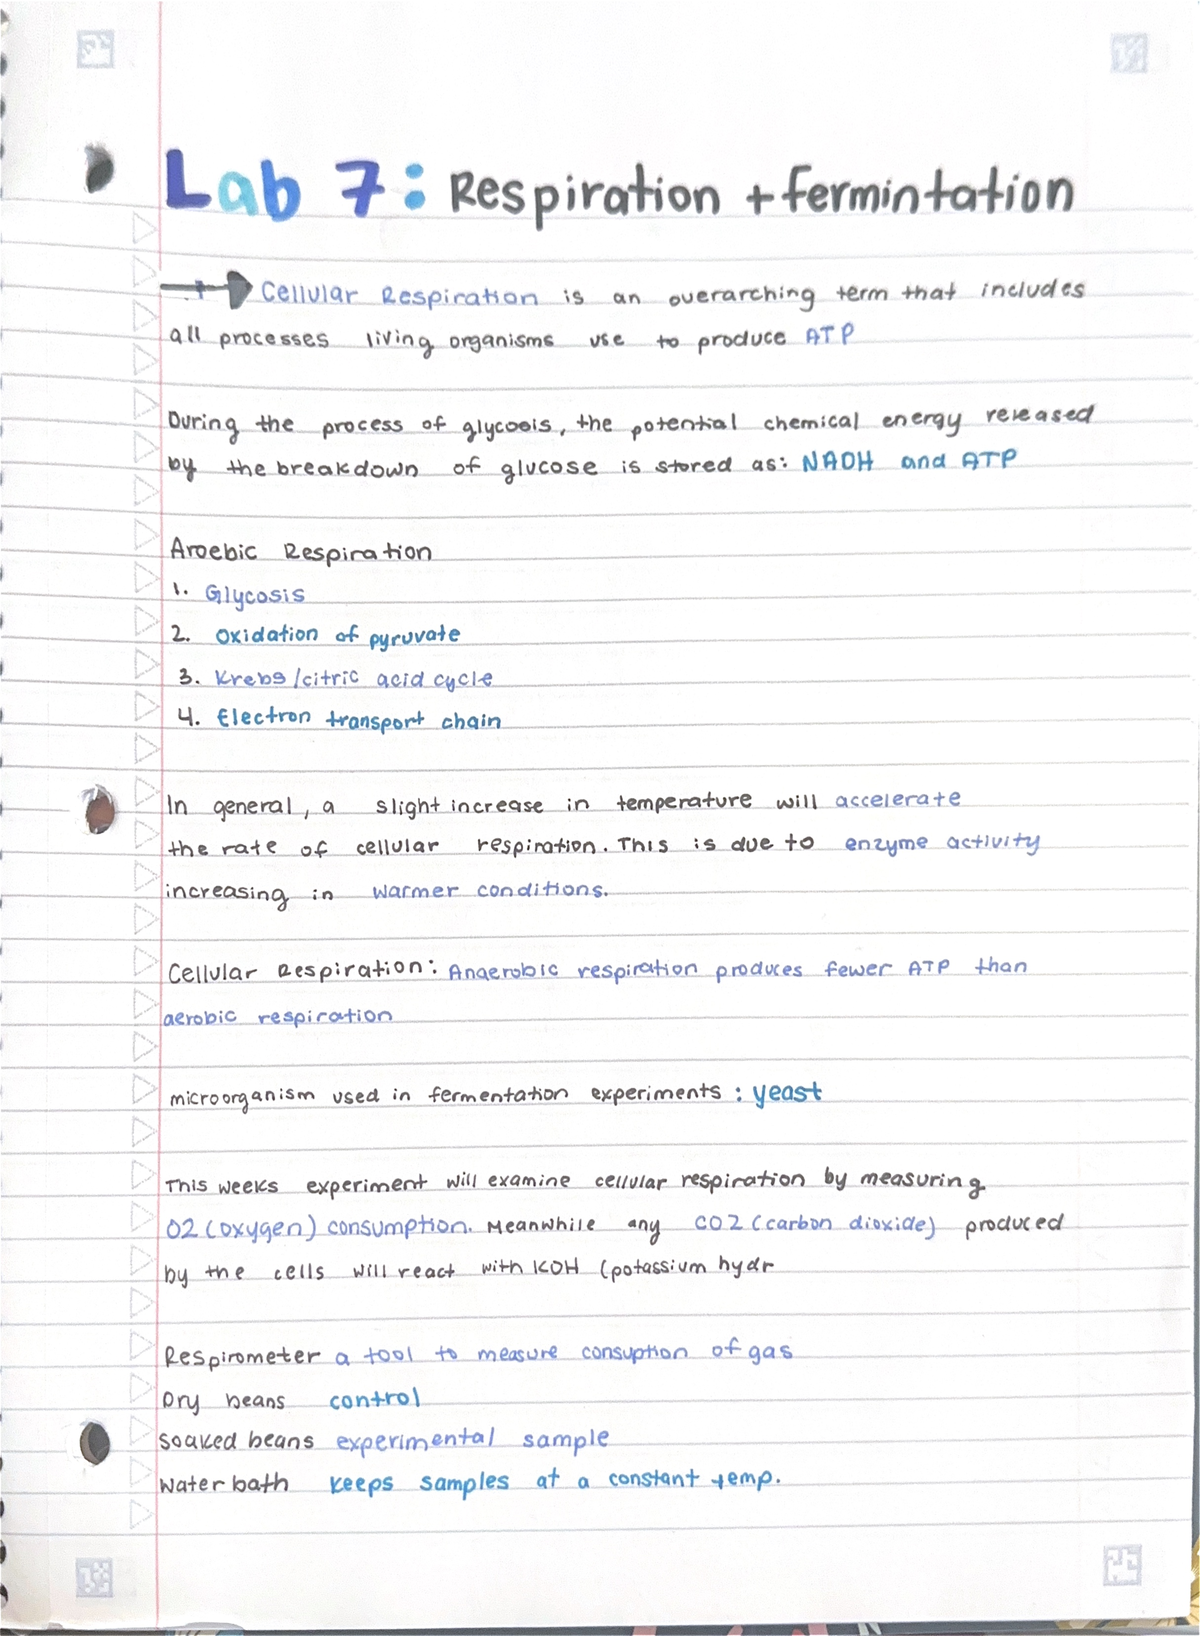 Lab 7: Respiration + fermintation
Cellular Respiration is an overarching term that includes
all processes living organisms use to produce ATP
During the process of glycosis, the potential chemical energy released
by the breakdown of glucose is stored as: NADH and ATP
Aroebic Respiration
1. Glycosis
2. Oxidation of pyruvate
3. Krebs/citric acid cycle
4. Electron transport chain
In general, a slight increase in temperature will accelerate
the rate of cellular respiration. This is due to enzyme activity
increasing in warmer conditions.
Cellular Respiration: Anaerobic respiration produces fewer ATP than
aerobic respiration
microorganism used in fermentation experiments: yeast
This weeks experiment will examine cellular respiration by measuring
O2 (oxygen) consumption. Meanwhile any CO2 (carbon dioxide) produced
by the cells will react with KOH (potassium hydr
Respirometer a tool to measure consuption of gas
Dry beans control
soaked beans experimental sample
Water bath keeps samples at a constant temp.